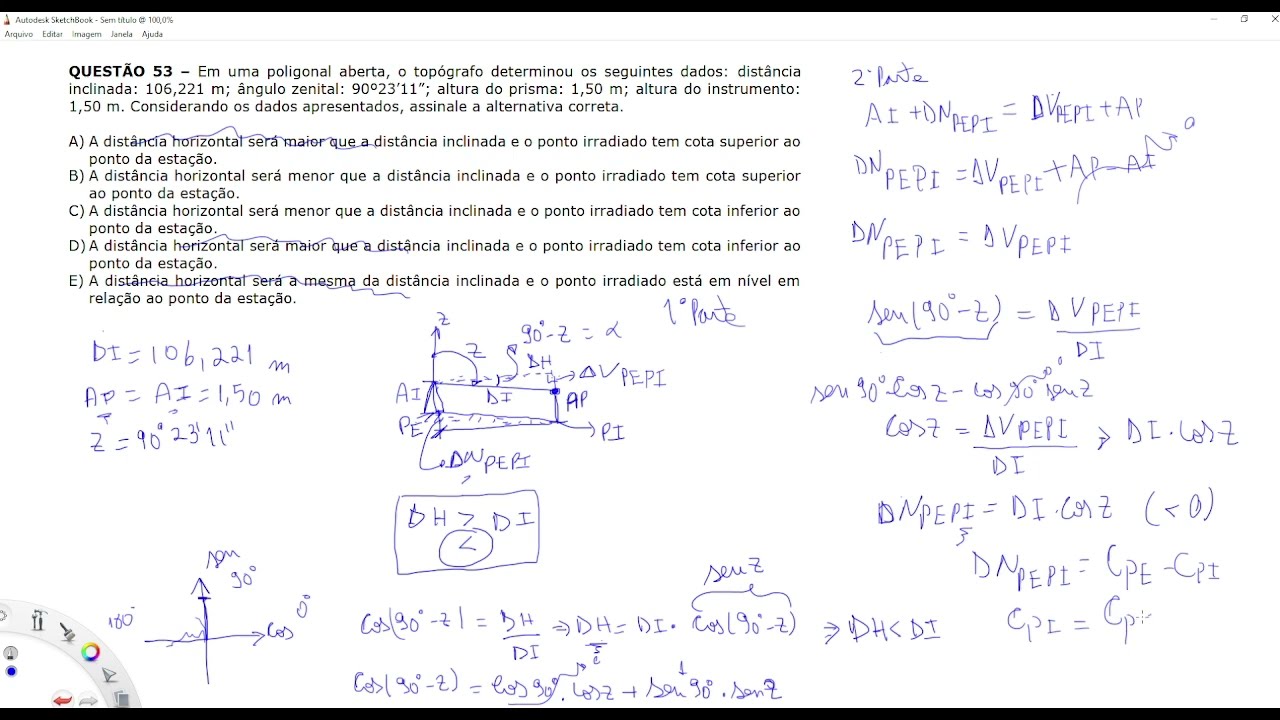 Autodesk SketchBook - Sem título @ 100,0%
Arquivo Editar Imagem Janela Ajuda
QUESTÃO 53 – Em uma poligonal aberta, o topógrafo determinou os seguintes dados: distância
inclinada: 106,221 m; ângulo zenital: 90º23’11”; altura do prisma: 1,50 m; altura do instrumento:
1,50 m. Considerando os dados apresentados, assinale a alternativa correta.
A) A distância horizontal será maior que a distância inclinada e o ponto irradiado tem cota superior ao
ponto da estação.
B) A distância horizontal será menor que a distância inclinada e o ponto irradiado tem cota superior
ao ponto da estação.
C) A distância horizontal será menor que a distância inclinada e o ponto irradiado tem cota inferior ao
ponto da estação.
D) A distância horizontal será maior que a distância inclinada e o ponto irradiado tem cota inferior ao
ponto da estação.
E) A distância horizontal será a mesma da distância inclinada e o ponto irradiado está em nível em
relação ao ponto da estação.
DI = 106,221 m
AP = AI = 1,50 m
Z = 90°23'11"
1ª Parte
Z
90°-Z = α
Z
DH
ΔVPEPI
AI
DI
AP
PE
PI
DNPEPI
DH > DI
<
sen
90°
180°
0°
cos
sen Z
cos(90°-Z) = DH/DI ⇒ DH = DI · cos(90°-Z) ⇒ DH < DI
cos(90°-Z) = cos 90° · cos Z + sen 90° · sen Z
0
1
2ª Parte
AI + DNPEPI = ΔVPEPI + AP
DNPEPI = ΔVPEPI + AP - AI
0
DNPEPI = ΔVPEPI
sen(90°-Z) = ΔVPEPI/DI
sen 90° cos Z - cos 90° sen Z
0
cos Z = ΔVPEPI/DI ⇒ DI · cos Z
DNPEPI = DI · cos Z (<0)
DNPEPI = CPE - CPI
CPI = CP